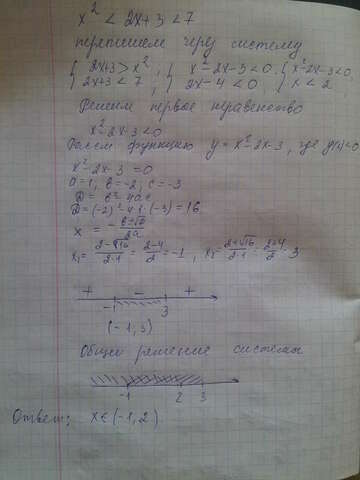 x² < 2x+3 < 7
перепишем через систему
{ 2x+3 > x² ; { x²-2x-3<0 ; { x²-2x-3<0
{ 2x+3 < 7 { 2x-4<0 { x < 2
Решим первое неравенство
x²-2x-3<0
функцию y = x²-2x-3, где y(x)<0
x²-2x-3 = 0
a=1, b=-2, c=-3
D = b²-4ac
D=(-2)²-4·1·(-3)=16
x = -b±√D/2a
x₁= 2-√16/2·1 = 2-4/2 = -1 , x₂= 2+√16/2·1 = 2+4/2 = 3
+ - +
-1 3
(-1,3)
Общее решение системы
-1 2 3
Ответ: x∈(-1,2)